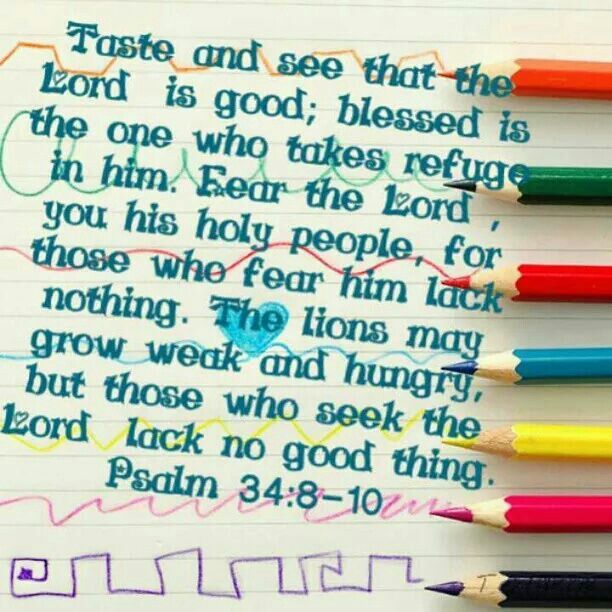 Taste and see that the
Lord is good; blessed is
the one who takes refuge
in him. Fear the Lord ,
you his holy people, for
those who fear him lack
nothing. The lions may
grow weak and hungry,
but those who seek the
Lord lack no good thing.
Psalm 34:8-10